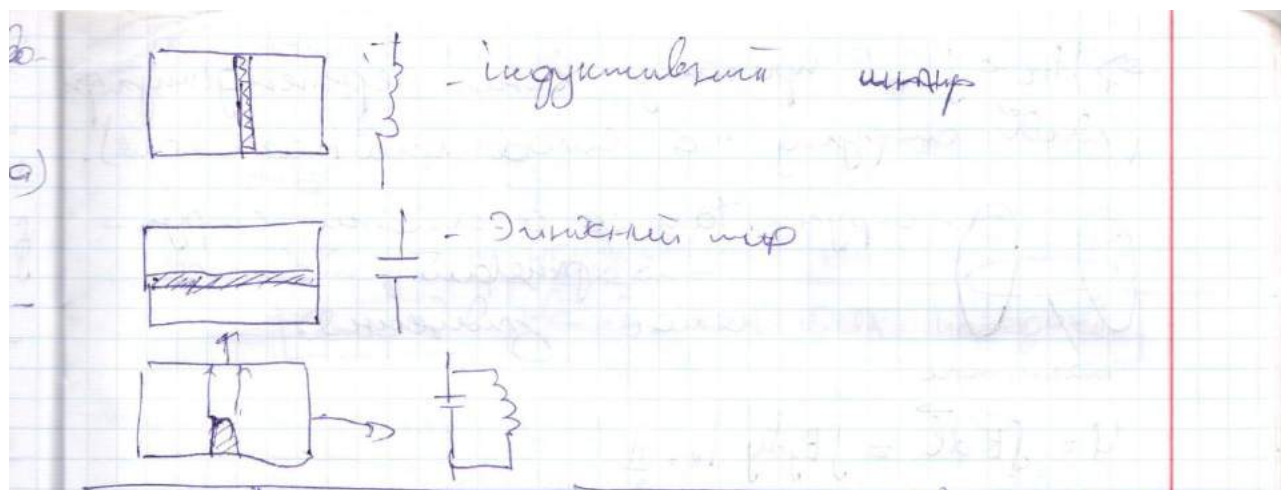 - індуктивний штир
- Ємнісний штир